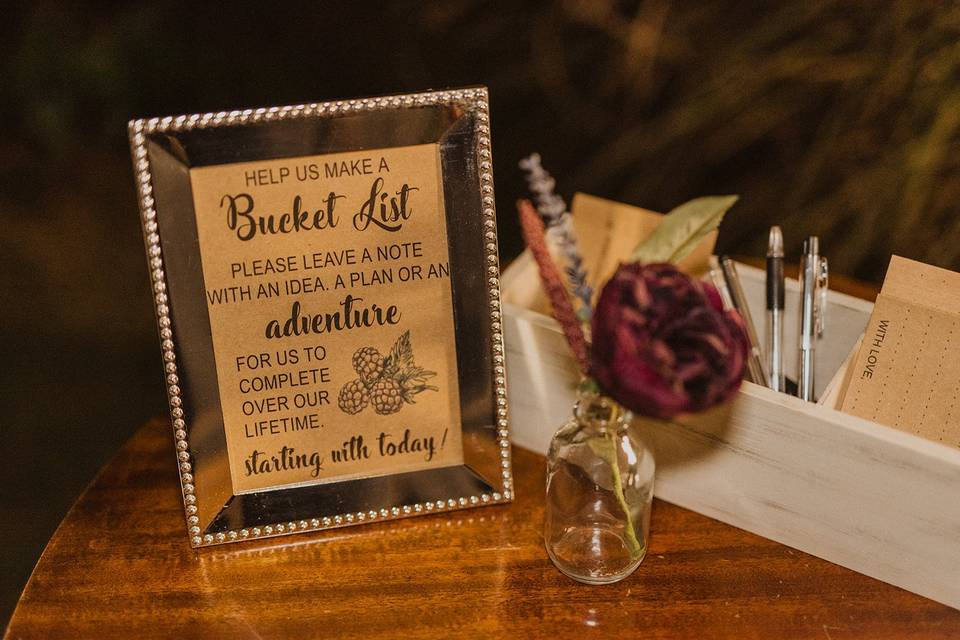 HELP US MAKE A
Bucket List
PLEASE LEAVE A NOTE
WITH AN IDEA. A PLAN OR AN
adventure
FOR US TO
COMPLETE
OVER OUR
LIFETIME.
starting with today!
WITH LOVE,